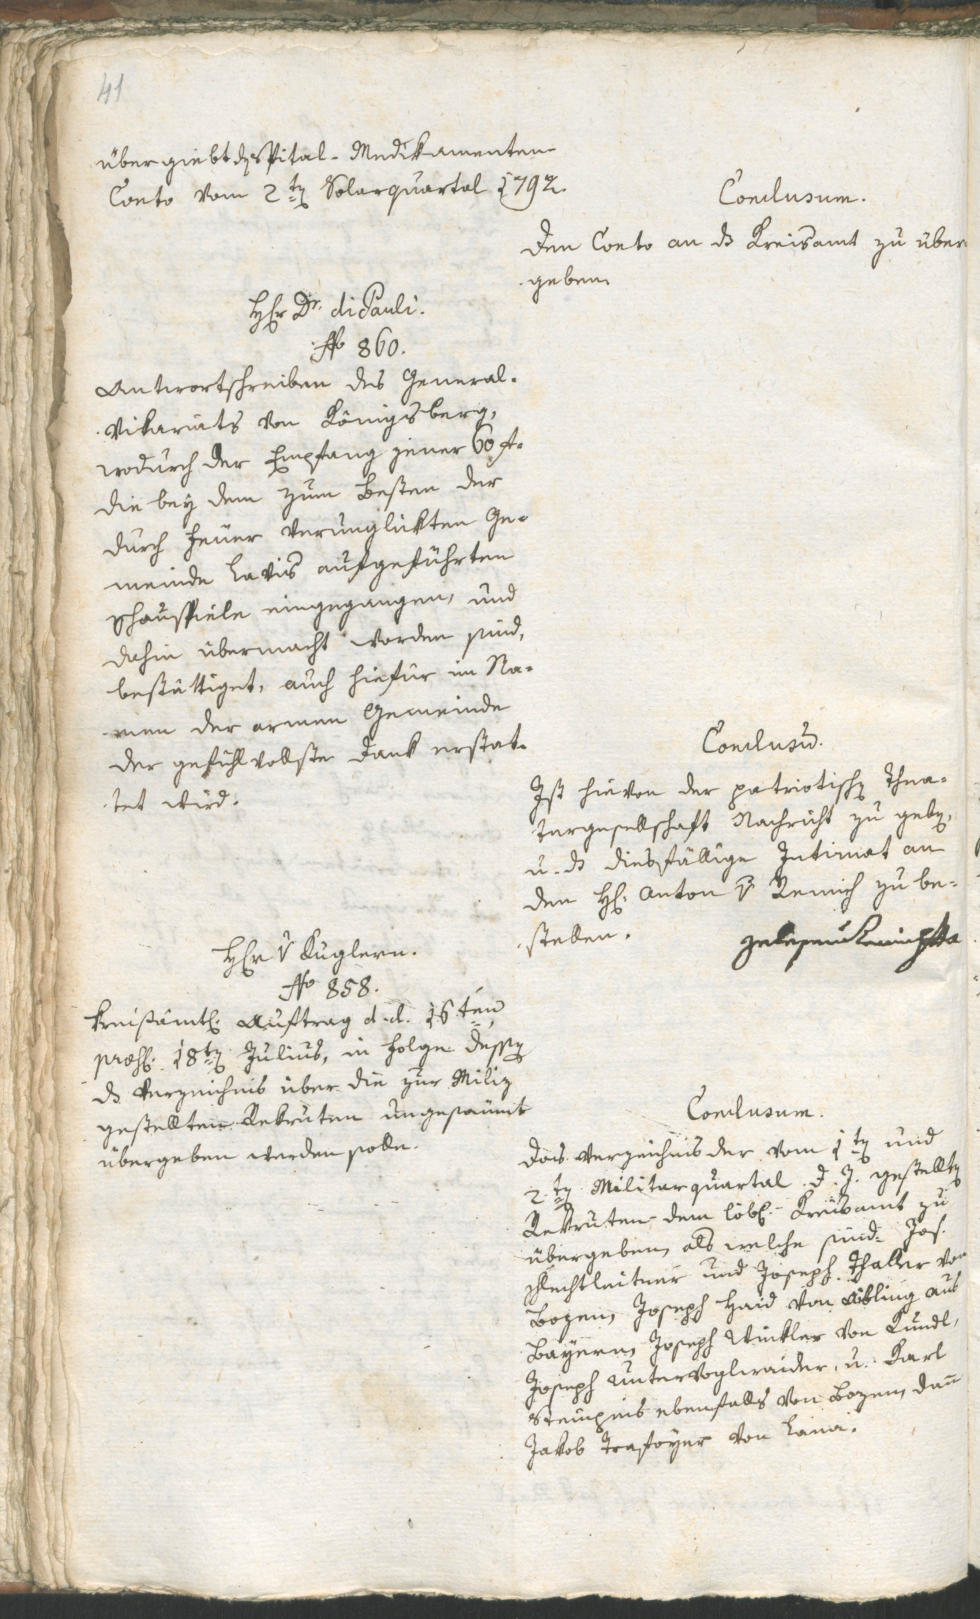 41
übergiebt d. Spital-Medikamenten-
Conto vom 2ten Solarquartal 1792.
Conclusum.
Den Conto an das Kreisamt zu über
geben.
Hr Dr. di Pauli.
No 860.
Antwortschreiben des General-
Vikariats von Königsberg,
wodurch der Empfang jener 60 f.
die bey dem zum Besten der
durch Feuer verunglückten Ge-
meinde Lavis aufgeführten
Schauspiele eingegangen, und
dahin übermacht worden sind,
bestättiget, auch hiefür im Na-
men der armen Gemeinde
der gefühlvollste Dank erstat-
tet wird.
Conclusū.
Ist hievon der patriotischen Thea-
tergesellschaft Nachricht zu geben,
u. das diesfällige Intimat an
den H. Anton v Remich zu be-
stellen.
gelesen
Hr v Kuglern.
No 858.
Kreisämtl. Auftrag d. d. 16ten
praes. 18ten Julius, in Folge dessen
das Verzeichnis über die zur Miliz
gestellten Rekruten ungesäumt
übergeben werden solle.
Conclusum.
Das Verzeichnis der vom 1ten und
2ten Militarquartal d. J. gestellten
Rekruten dem löbl. Kreisamt zu
übergeben, als welche sind: Jos.
Schlechtleitner und Joseph Thaler von
Bozen, Joseph Haid von Aibling aus
Bayern, Joseph Winkler von Kundl,
Joseph Untervoglraider, u. Karl
ebenfalls von Bozen, dan̄
Jakob Trafoyer von Lana.